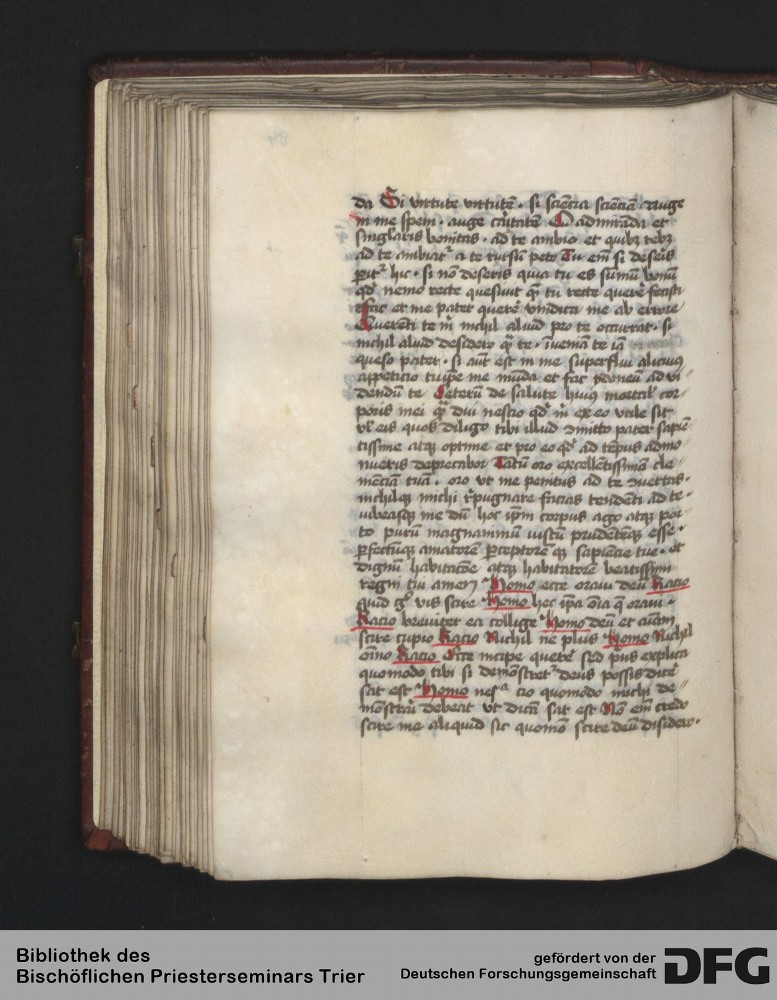 da Si virtute virtutē · si sciēcia sciēciā auge
in me spem · auge caritatē O admirāda et
singlaris bonitas · ad te ambio et quibz rebz
ad te ambiat᷑ a te rursū peto Tu em̄ si deseris
perit᷑ hic · si nō deseris quia tu es sūmū bonū
qd̄ nemo recte quesivit q̄ tu recte querē fecisti
Fac et me pater querē vindica me ab errore
Querēti te m̄ nichil aliud pro te occurrat · si
nichil aliud desidero q̄ te · īveniā te iā
queso pater · si aūt est in me superflui alicuiꝰ
appeticio tu ip̄e me mūda et fac ydoneū ad vi
dendū te Ceterū de salute huiꝰ mortal' cor
poris mei q̄ diu nescio qd̄ m̄ ex eo utile sit
vl' eis quos diligo tibi illud ꝯmitto pater sapiē
tissime atqꝫ optime et pro eo qd̄ ad tēpus admo
nueris deprecabor Tātū oro excellētissimā cle
mēciam tuā · oro ut me penitus ad te ꝯvertas ·
nichilqꝫ michi repugnare facias tendēti ad te ·
iubeasqꝫ me dū hoc ip̄m corpus ago atqꝫ por
to purū magnanimū iustū prudētēqꝫ esse ·
ꝑfectūqꝫ amatorē ꝑceptorē qꝫ sapiēcie tue · et
dignū habitacōe atqꝫ habitatorē beatissimi
regni tui amen Homo ecce oravi deū Racio
quid gͦ vis scire Homo hec ip̄a oīa q̄ oravi ·
Racio breviter ea collige Homo deū et aīam
scire cupio Racio Nichil ne plus Homo Nichil
oīno Racio Ecce incipe querē sed pͥus explica
quomodo tibi si demōstret᷑ deus possis dicē
sat est Homo nescio quomodo michi de
mōstrari debeat ut dicā sat est Nō em̄ credo
scire me aliquid sic quomō scire deū disidero ·
Bibliothek des
Bischöflichen Priesterseminars Trier
gefördert von der
Deutschen Forschungsgemeinschaft
DFG